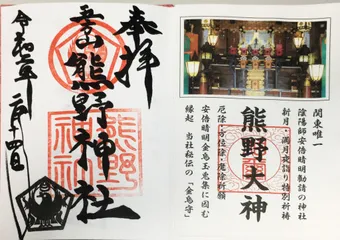 関東唯一
陰陽師安倍晴明勧請の神社
新月・満月夜詣り特別祈祷
熊野大神
厄除・方位除・魔除祈願
安倍晴明金烏玉兎集に因む
縁起 当社秘伝の「金烏守」
奉拝
五方山熊野神社
熊野神社